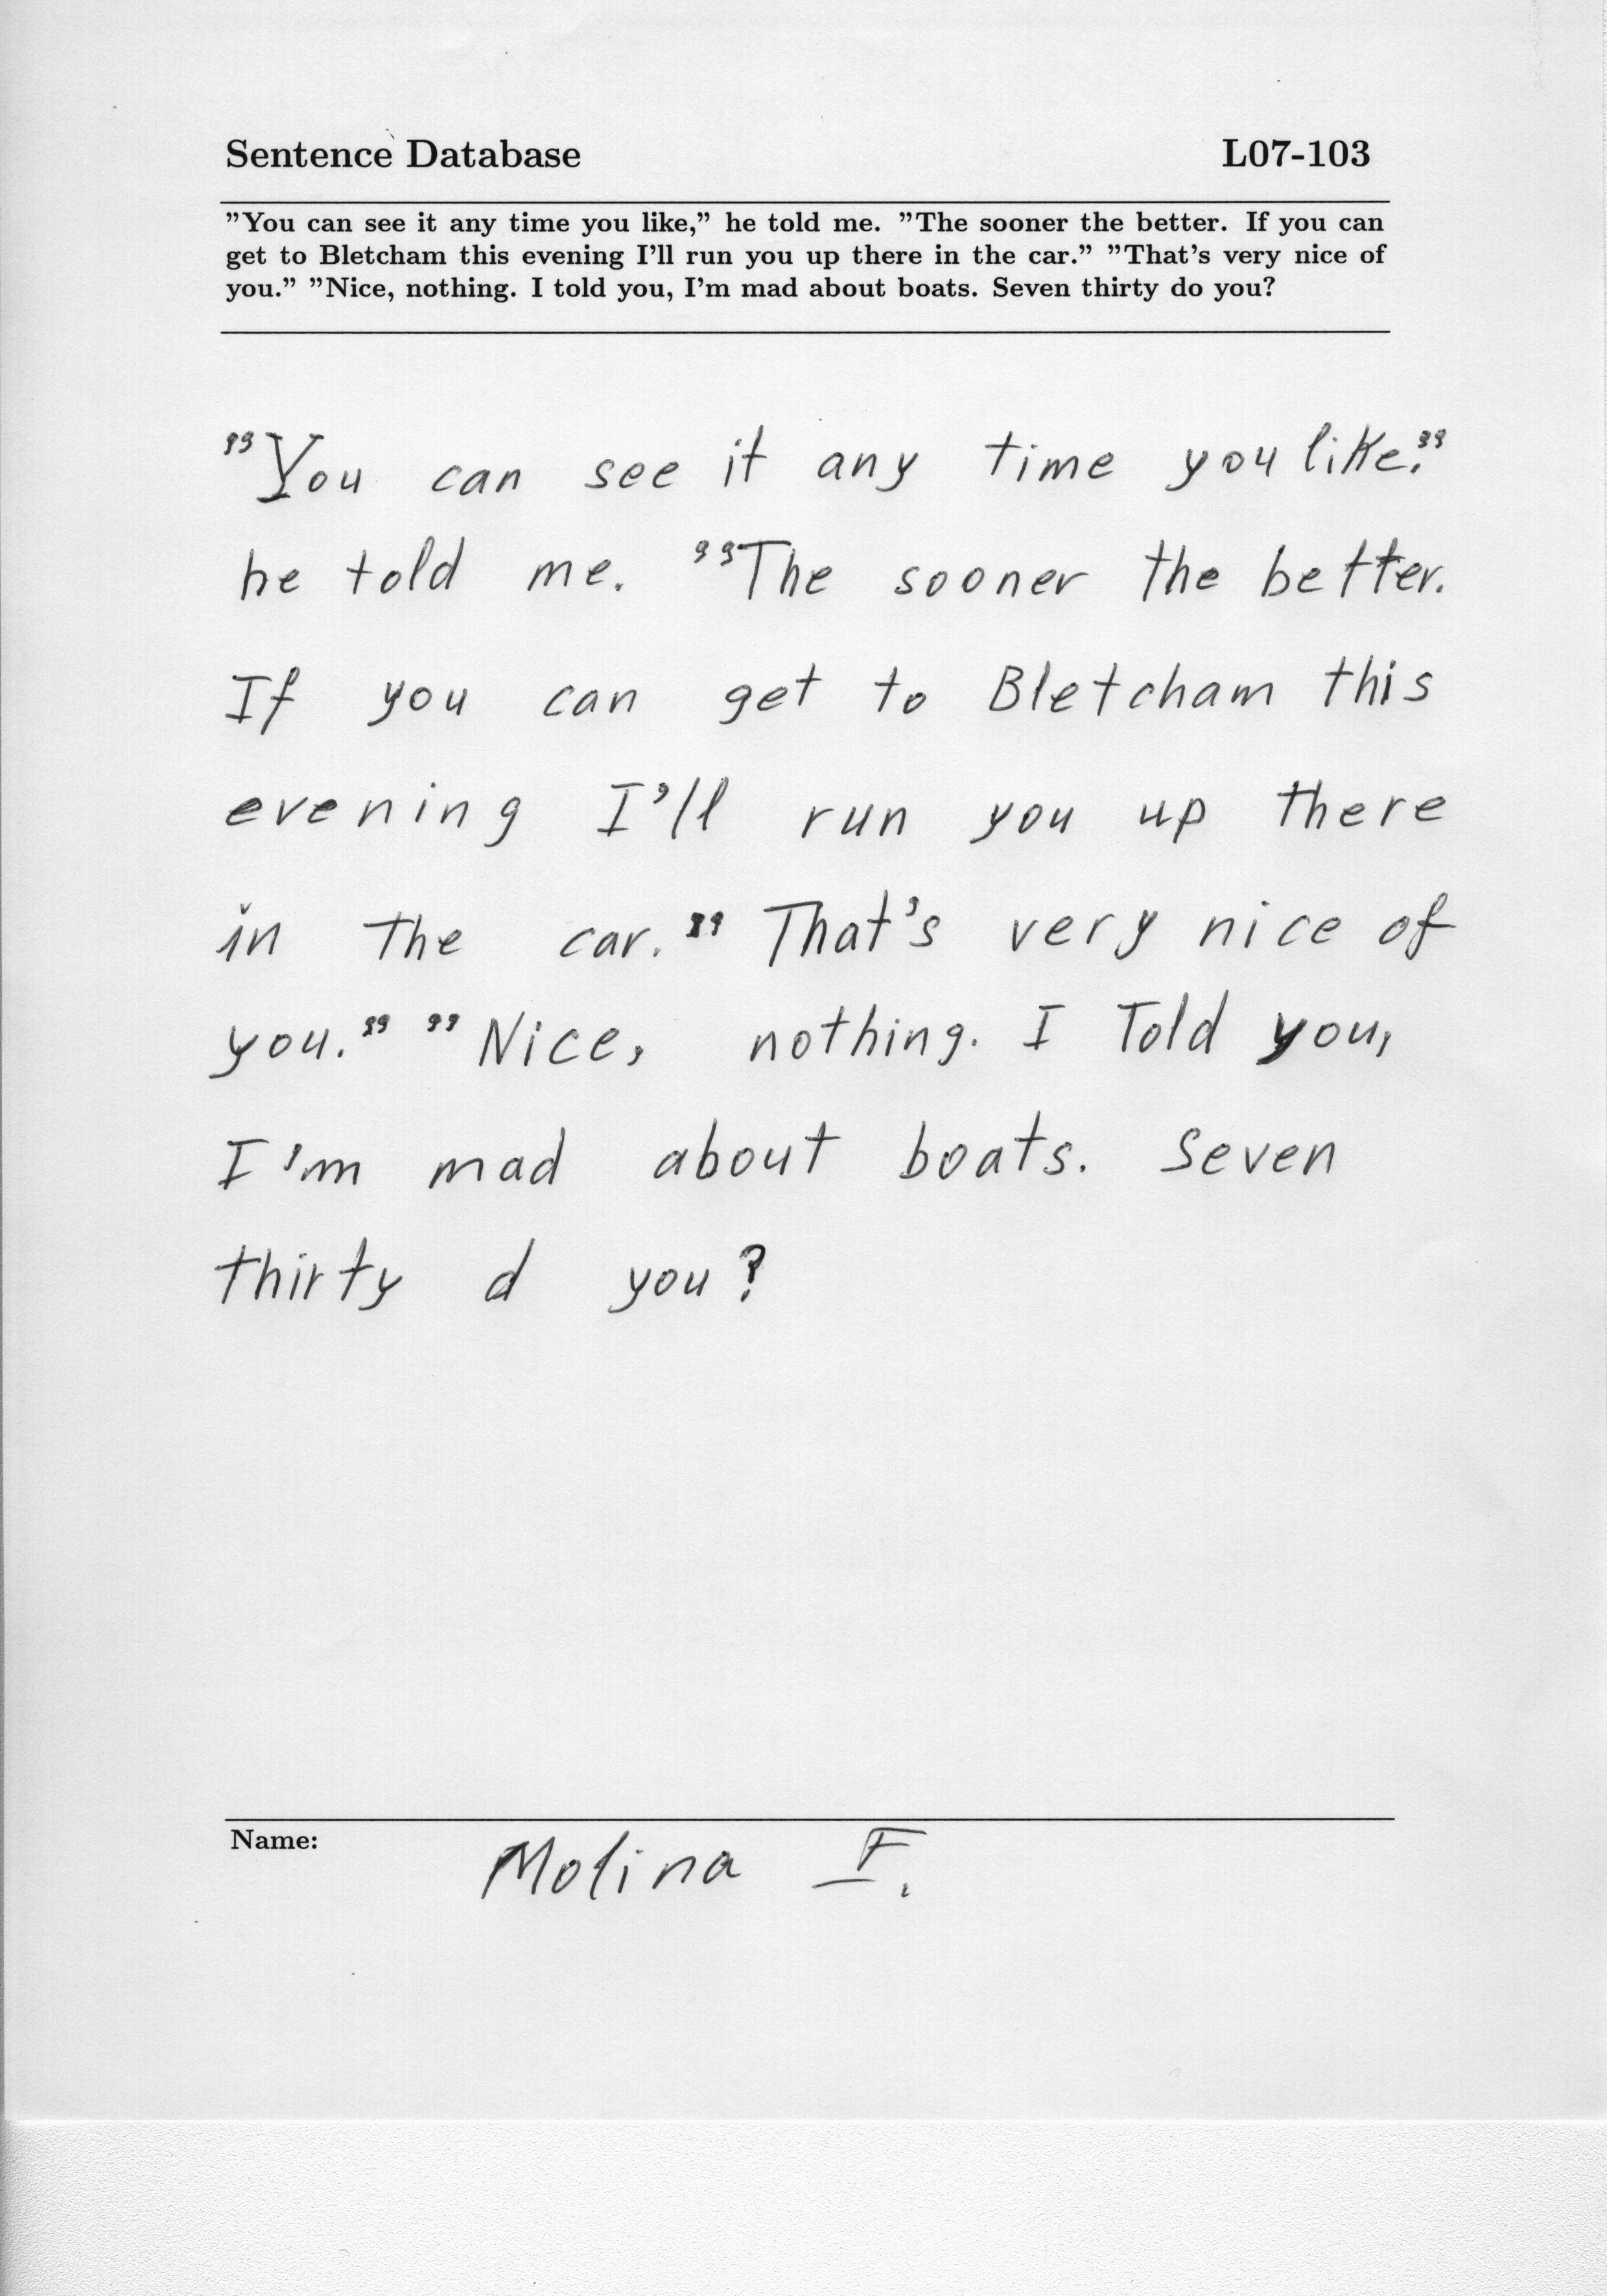 Sentence Database L07-103
”You can see it any time you like,” he told me. ”The sooner the better. If you can
get to Bletcham this evening I’ll run you up there in the car.” ”That’s very nice of
you.” ”Nice, nothing. I told you, I’m mad about boats. Seven thirty do you?
”You can see it any time you like.”
he told me. ”The sooner the better.
If you can get to Bletcham this
evening I’ll run you up there
in the car.” That’s very nice of
you.” ”Nice, nothing. I Told you,
I’m mad about boats. Seven
thirty d you?
Name: Molina F.